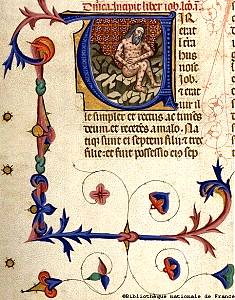 Dñica. Incipit liber iob. Ica. i.
IR
erat
i terra
hus
nõie
Job.
⁊ erat
uir il
le simplex et rectus ac timēs
deum et recedēs a malo. Na
tiqȝ sunt ei septem filii ⁊ tres
filie. et fuit possessio eius sep
©Bibliothèque nationale de France